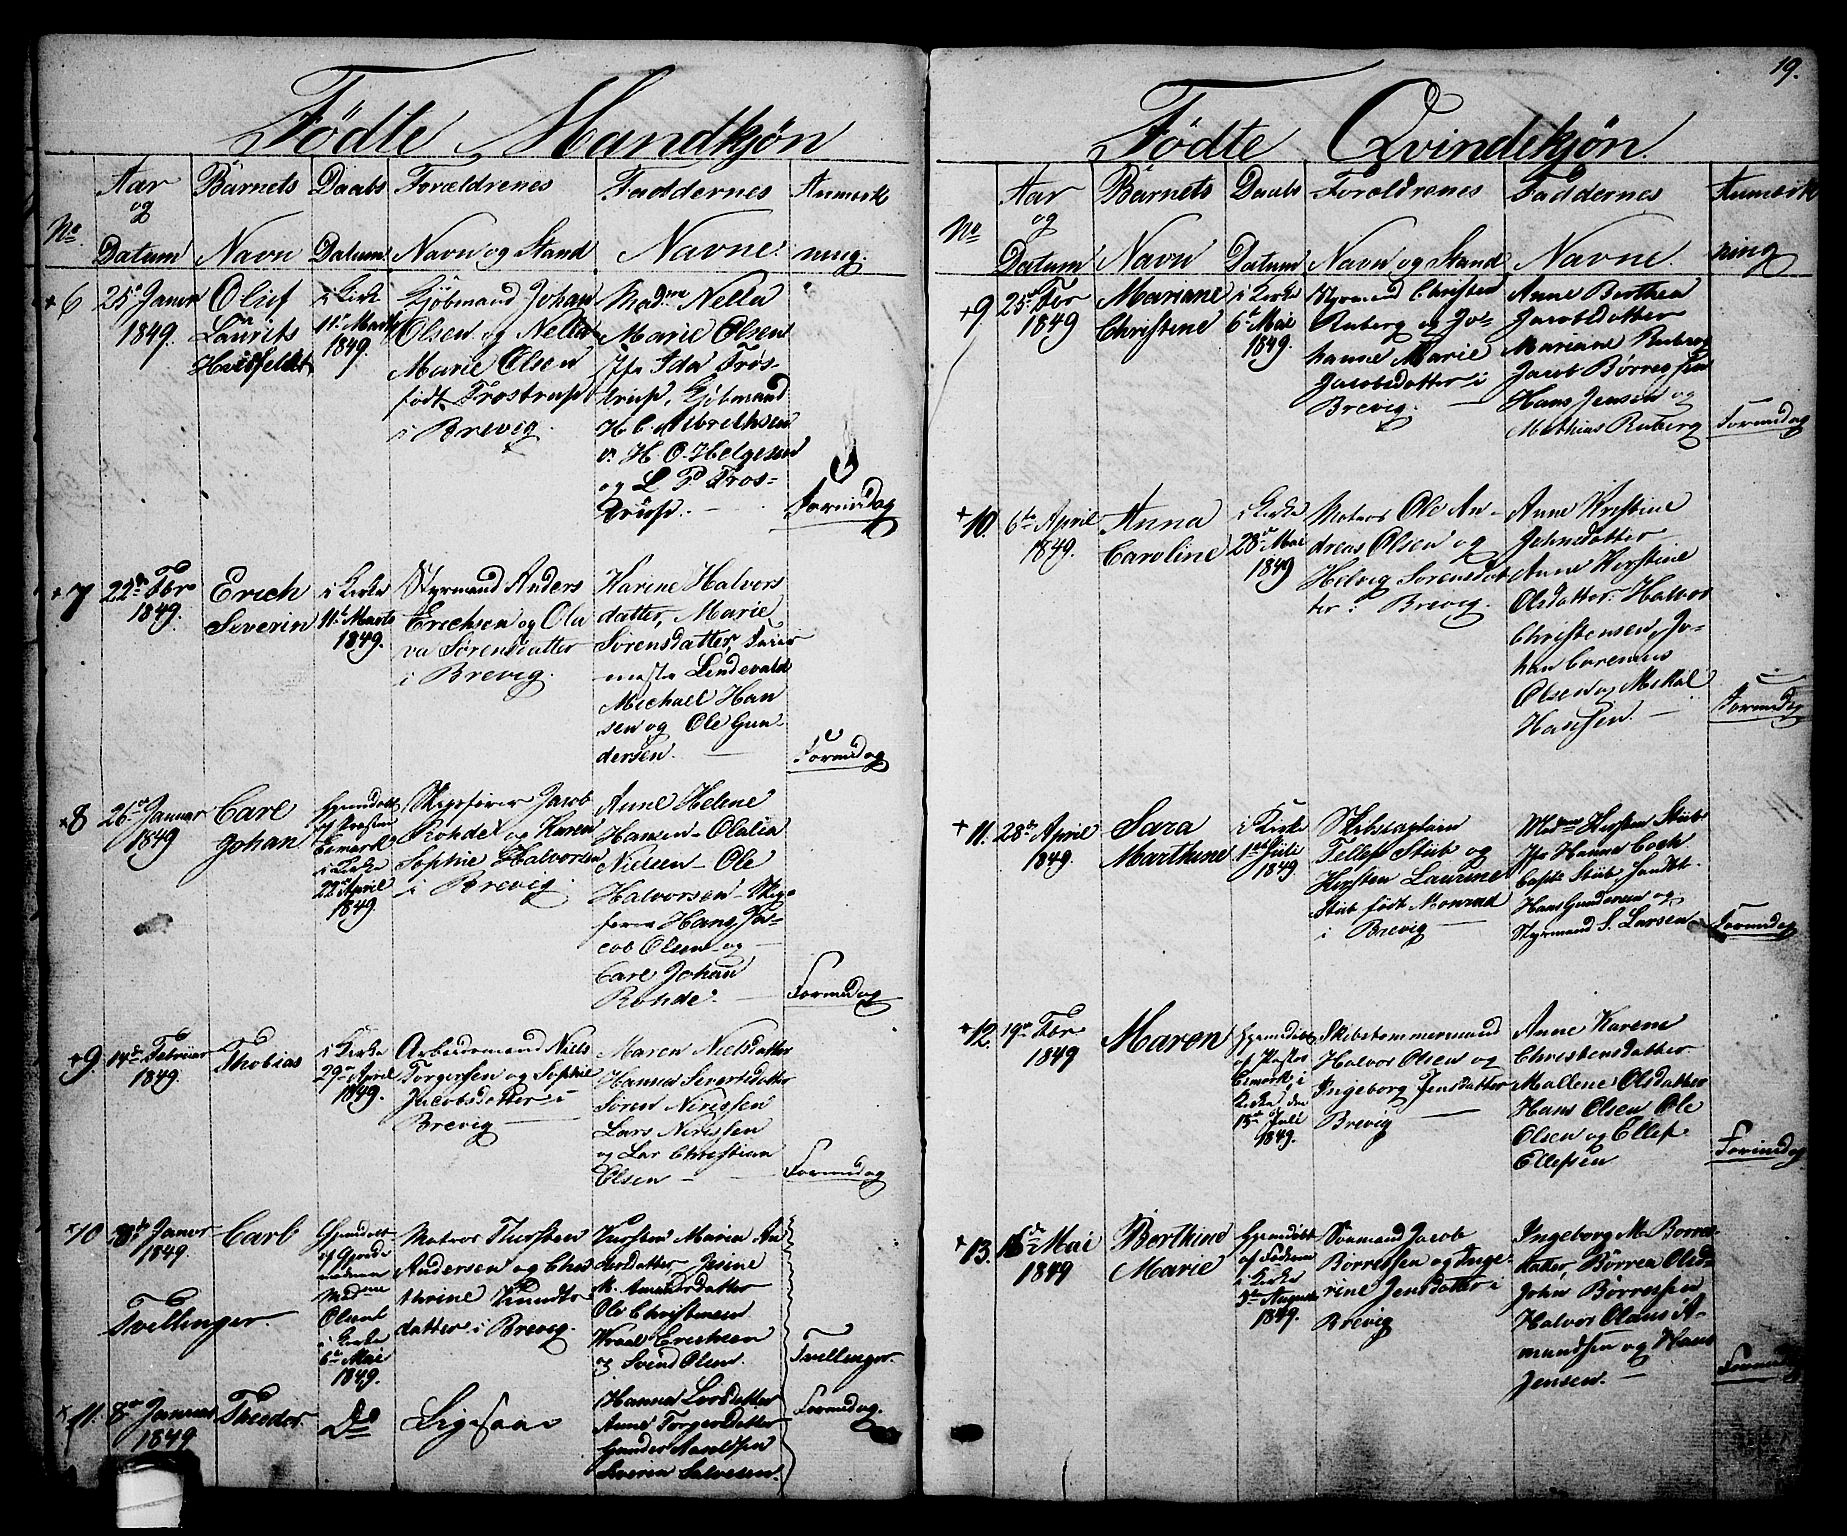 19.
Födte Mandkjøn
No
Aar og Datum
Barnets Navn
Daabs Datum
Forældrenes Navn og Stand
Faddernes Navne.
Anmærkning.
+6
25de Januar
1849.
Oluf
Laurits
Hvitfeldt
i Kirke
11te Marts
1849.
Kjøbmand Johan
Olsen og Nella
Marie Olsen
født Frostrup
i Brevig.
Madme Nella
Marie Olsen
Jfr Ida Fros-
trup, Kjøbmand
H C Albrethsen
H. O. Helgesen
og L P. Fros-
trup.
Formdag
+7
22de Fbr
1849.
Erich
Severin
i Kirke
11te Marts
1849.
Styrmand Anders
Erichsen og Ola
va Sørensdatter
i Brevig.
Karine Halvors
datter, Marie
Sørensdatter,
Lindevald
Michael Han
sen og Ole Gun
dersen.
Formdag
+8
26de Januar
1849
Carl
Johan
Hjemdøbt
af Presten
i Kirke
22de April
1849
Skipsfører Jacob
Rohde og Karen
Sophie Halvorsen
i Brevig.
Anne Helene
Hansen - Olalia
Nielsen - Ole
Halvorsen - Skips
fører Hans Ja-
cob Olsen og
Carl Johan
Rohde.
Formdag
+9
14de Februar
1849.
Thobias
i Kirke
29de April
1849.
Arbeidsmand Niels
Torgersen og Sophie
Jacobsdatter i
Brevig
Maren Nielsdatter
Hanna Sivertsdatter
Søren Nirissen
Lars Nirissen
og Lar Christian
Olsen
Formdag
+10
28de Janur
1849.
Carl
Hjemdøbt
af Gjorde
moderen
Madme
Olsen
i Kirke
6te Mai
1849.
Matros Thorsten
Andersen og Cha
thrine Knuds
datter i Brevig.
Thorsten Maria An
dersdatter Jesine
K. Amundsdatter
Ole Christensen
Wraal Erichsen
og Svend Olsen.
Tvillinger.
Tvillinger.
+11.
8de Januar
1849
Theodor.
Do
Ligesaa
Hanna Larsdatter
Anne Torgersdatter
Gunder Aaroldsen
Severin Salvesen.
Formdag.
Födte Qvindekjøn.
No
Aar og Datum
Barnets Navn
Daabs Datum
Foreldrenes Navn og Stand
Faddernes Navne.
Anmærkning
+9.
25de Fbr
1849
Mariane
Christine
i Kirke
6te Mai
1849.
Styrmand Christen
Ruberg og Jo-
hanne Marie
Jacobsdatter i
Brevig.
Anne Berthea
Jacobsdatter
Mariane Ruberg
Jacob Børressen
Hans Jensen og
Mathias Ruberg
Formdag
+10.
6te April
1849.
Anna
Caroline
i Kirke
28de Mai
1849
Matros Ole An-
dreas Olsen og
Helvig Sørensdat
ter i Brevig.
Anne Kristine
Johnsdatter
Anne Kirstine
Olsdatter. Halvor
Christensen, Jo-
han Corenius
Olsen og Mikal
Hansen.
Formdag
+11.
28de April
1849.
Sara
Marthine
i Kirke
1ste Juli
1849
Skibscaptain
Tellef Stub og
Kirsten Laurine
Stub født Monrad
i Brevig
Madme Kirsten Stub
Jfr Hanne Coch
Captn Stub
Hans Gundersen og
Styrmand S. Larsen
Formdag
+12.
19de Fbr
1849
Maren
Hjemdøbt
af Pastor
i
Kirke den
15de Juli
1849.
Skibstømmermand
Halvor Olsen og
Ingeborg Jensdatter
Brevig
Anne Karene
Christensdatter
Mallene Olsdatter
Hans Olsen Ole
Olsen og Ellef
Ellefsen
Formdag
+13.
16de Mai
1849
Berthine
Marie
Hjemdøbt
af Faderen
i Kirke
5te August
1849.
Sømand Jacob
Børressen og Inge
rine Jensdatter i
Brevig
Ingeborg M. Børres
datter Børrea Olsd.
John Børressen
Halvor Olaus A-
mundsen og Hans
Jensen.
Formdag